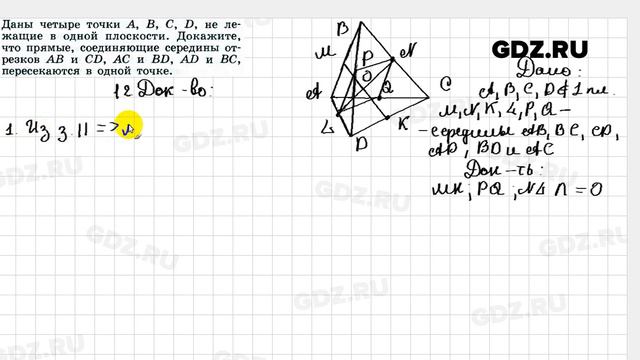 Даны четыре точки A, B, C, D, не ле-
жащие в одной плоскости. Докажите,
что прямые, соединяющие середины от-
резков AB и CD, AC и BD, AD и BC,
пересекаются в одной точке.
12 Док-во:
1. Из з. 11 =>
B
M
P
N
O
A
Q
C
L
K
D
GDZ.RU
Дано:
A, B, C, D ∉ 1 пл.
M, N, K, L, P, Q –
– середины AB, BC, CD,
AD, BD и AC
Док-ть:
MK; PQ; NL ∩ = O
GDZ.RU
GDZ.RU
GDZ.RU
GDZ.RU
GDZ.RU
GDZ.RU